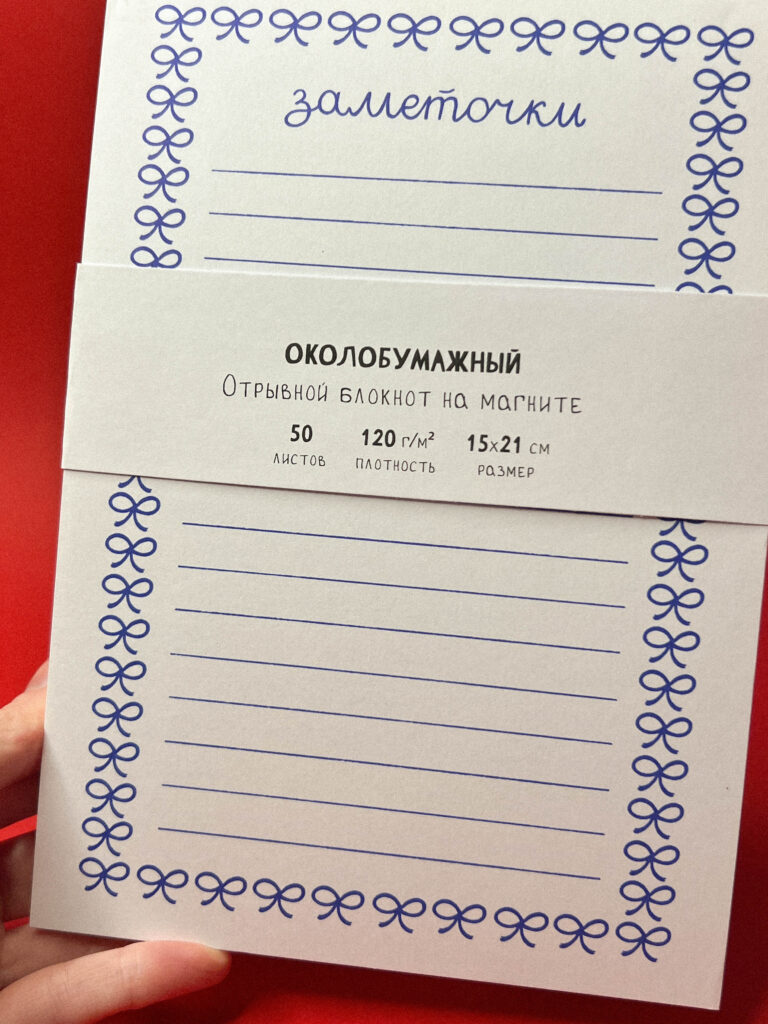 заметочки
ОКОЛОБУМАЖНЫЙ
Отрывной блокнот на магните
50 120 г/м² 15х21 см
листов плотность размер